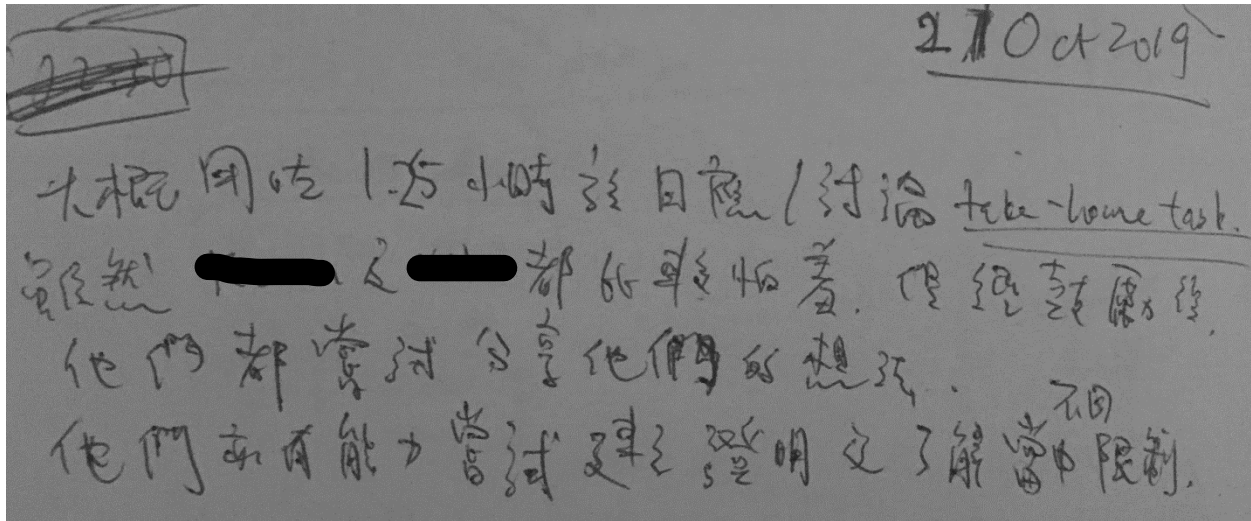 21 Oct 2019
大概用咗 1.25 小時 討論 take-home task.
雖然 及 都比較怕羞. 但經鼓勵後,
他們都嘗試分享他們的想法.
不同
他們亦有能力嘗試建立證明及了解當中限制.